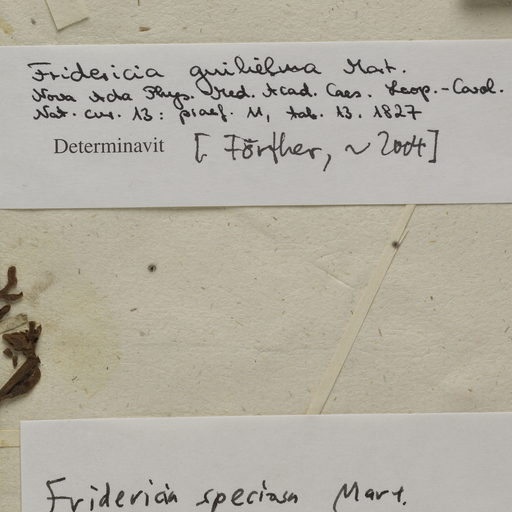 Fridericia guilielma Mart.
Nova Acta Phys. Med. Acad. Caes. Leop.-Carol.
Nat. cur. 13: praef. 11, tab. 13. 1827
Determinavit [Förther, ~2004]
Fridericia speciosa Mart.